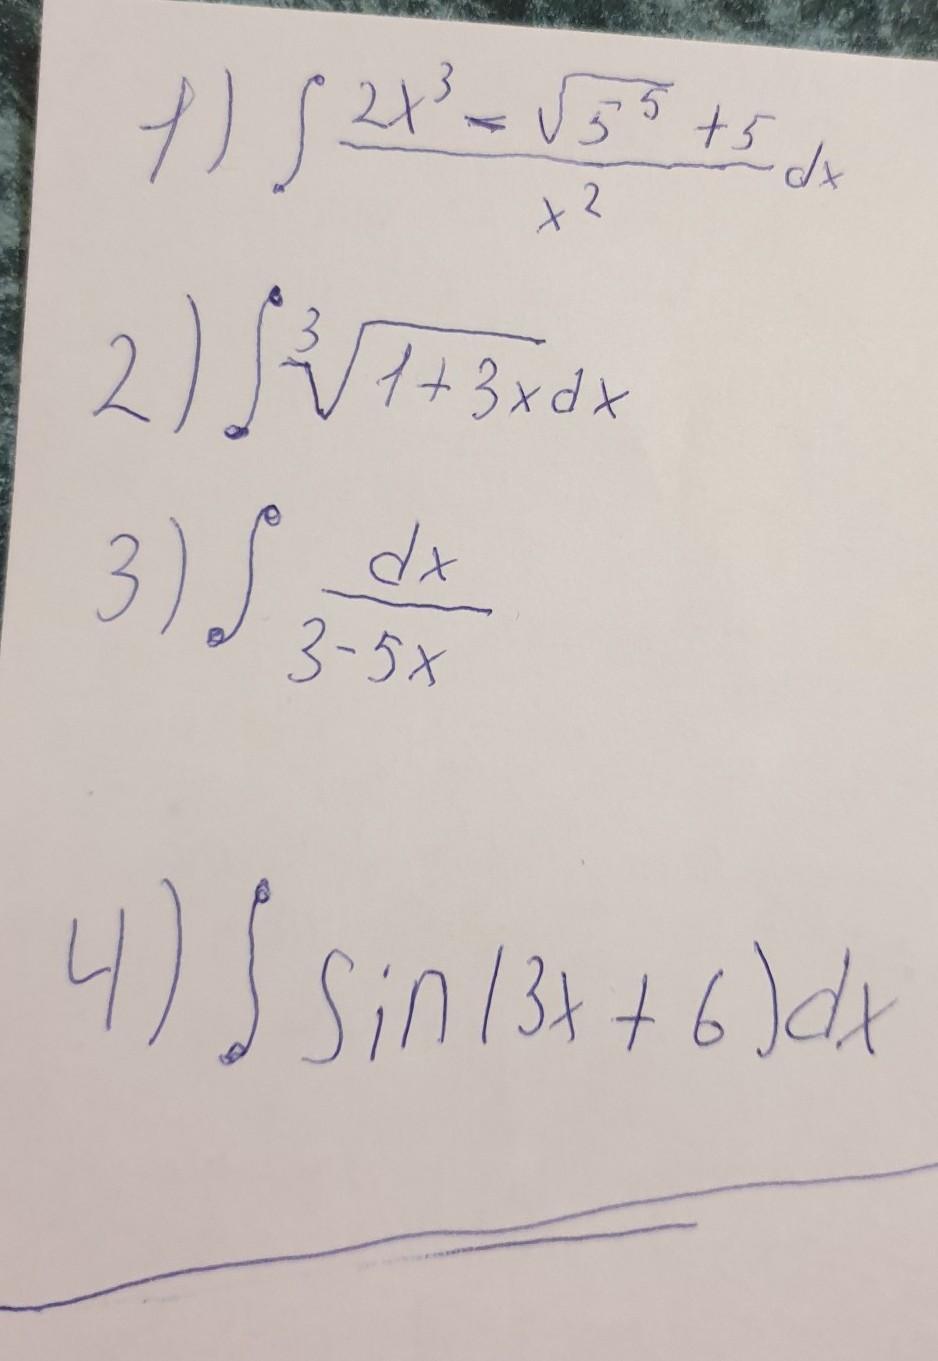 1) ∫ (2x³ - √5⁵ + 5)/x² dx
2) ∫ ³√(1+3x) dx
3) ∫ dx/(3-5x)
4) ∫ Sin(3x+6)dx